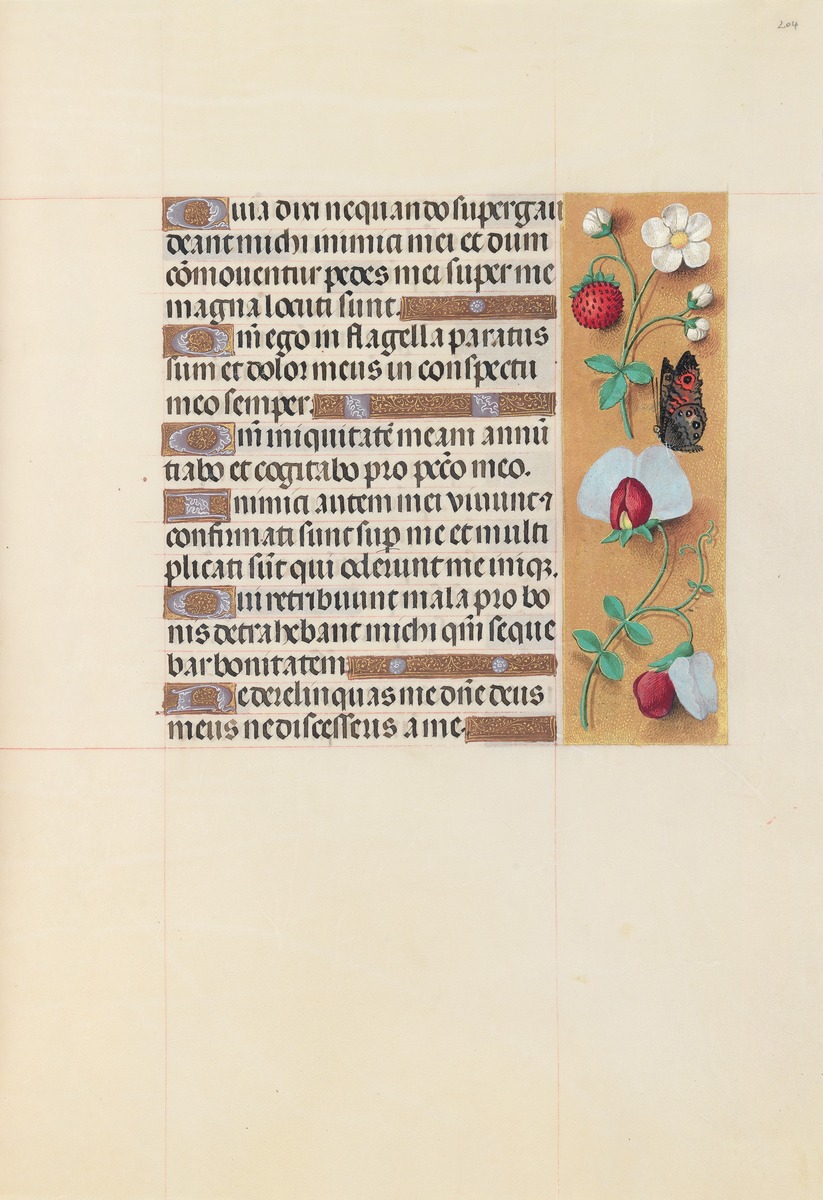 204
Quia dixi nequando supergau
deant michi inimici mei et dum
cõmouentur pedes mei super me
magna locuti sunt.
Qm̃ ego in flagella paratus
sum et dolor meus in conspectu
meo semper.
Qm̃ iniquitatẽ meam annũ
tiabo et cogitabo pro pecc̃o meo.
Inimici autem mei viuunt ⁊
confirmati sunt sup̱ me et multi
plicati sũt qui oderunt me iniqꝫ.
Qui retribuunt mala pro bo
nis detrahebant michi qm̃ seque
bar bonitatem
Ne derelinquas me dñe deus
meus ne discesseris a me.